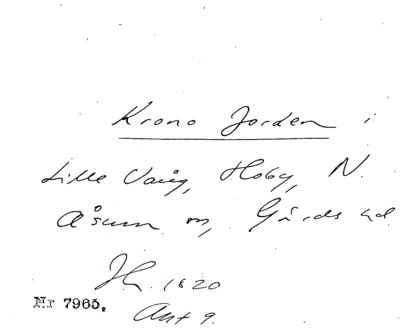 Krono Jorden i
Lille Vång, Hoby, N.
Åsum m, Gärds hd
1820
Nr 7965.
Akt 9.